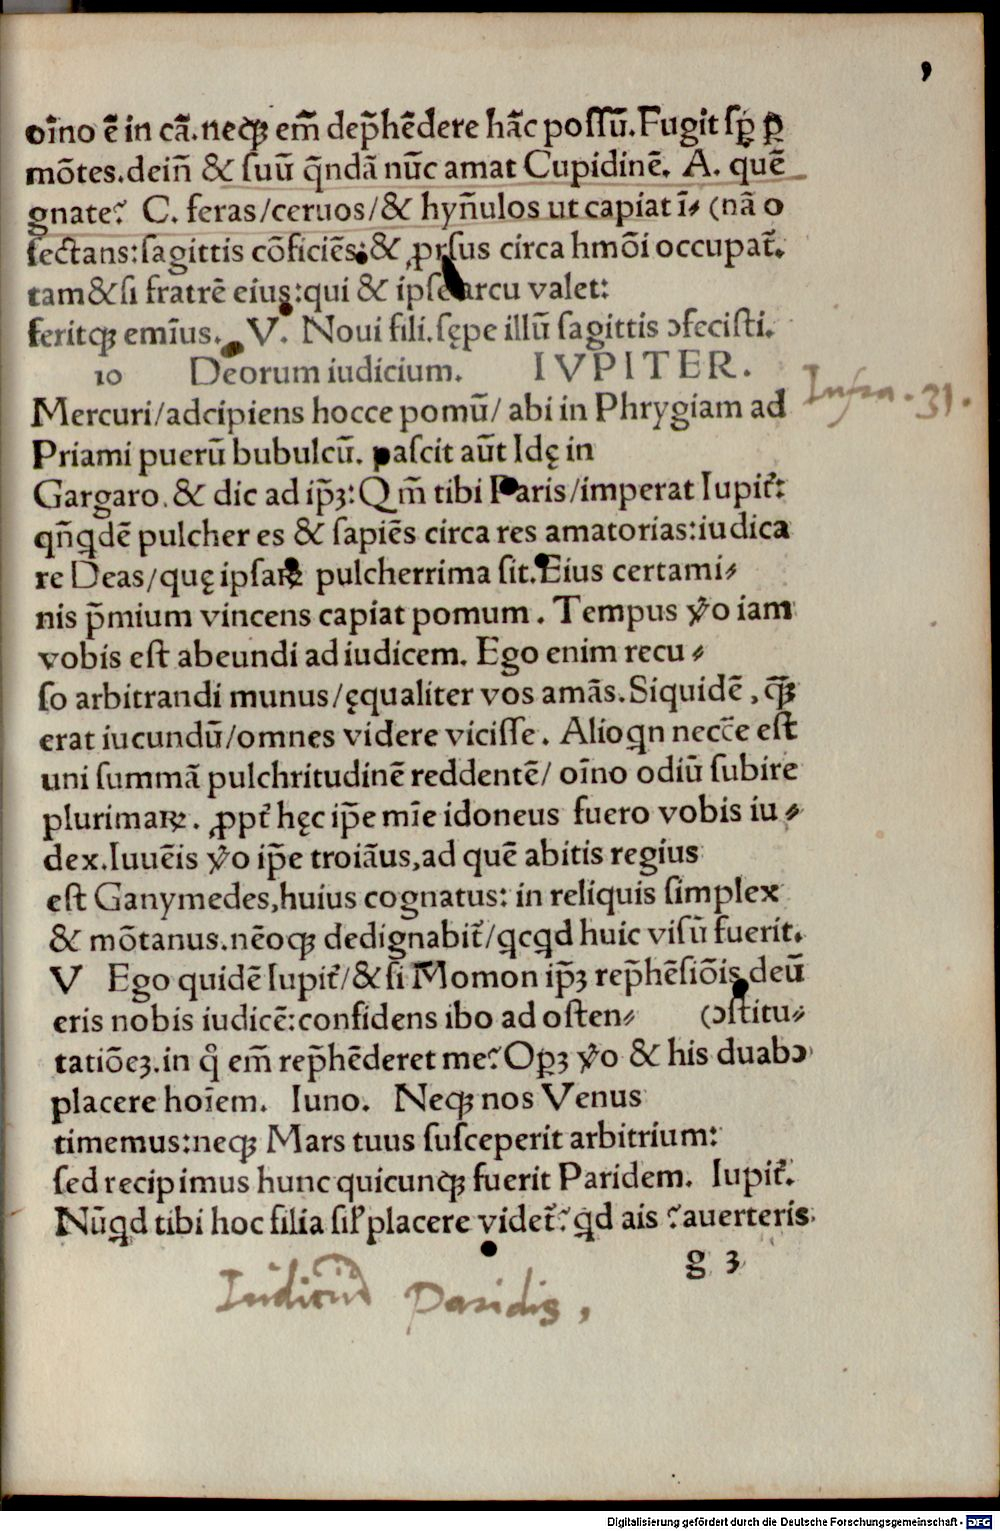 oı̄no ē in cā.neqꝫ em̄ dep̄hēdere hāc possū.Fugit sꝑ ꝑ
mōtes.dein̄ & suū q̄ndā nūc amat Cupidinē. A. quē
gnate? C. feras/ceruos/& hyn̄ulos ut capiat ī⸗ (nā o
sectans:sagittis cōficiēs:& ꝓrsus circa hmōi occupat᷑.
tam&si fratrē eius:qui & ipse arcu valet:
feritqꝫ emīus. V. Noui fili.sępe illū sagittis ↄfecisti.
10 Deorum iudicium. IVPITER.
Infra . 31.
Mercuri/adcipiens hocce pomū/ abi in Phrygiam ad
Priami puerū bubulcū. pascit aūt Idę in
Gargaro.& dic ad ip̄ꝫ:Qm̄ tibi Paris/imperat Iupit᷑:
qn̄qdē pulcher es & sapiēs circa res amatorias:iudica
re Deas/quę ipsaꝝ pulcherrima sit.Eius certami⸗
nis p̄mium vincens capiat pomum . Tempus ỽo iam
vobis est abeundi ad iudicem. Ego enim recu⸗
so arbitrandi munus/ęqualiter vos amās.Siquidē , qꝫ̄
erat iucundū/omnes videre vicisse. Alioqn necc̄e est
uni summā pulchritudinē reddentē/ oı̄no odiū subire
plurimaꝝ. ꝓpt᷑ hęc ip̄e mīe idoneus fuero vobis iu⸗
dex.Iuuēis ỽo ip̄e troiāus,ad quē abitis regius
est Ganymedes,huius cognatus: in reliquis simplex
& mōtanus.nēoqꝫ dedignabit᷑/qcqd huic visū fuerit.
V Ego quidē Iupit᷑/& si Momon ip̄ꝫ rep̄hēsiōis deū
eris nobis iudicē:confidens ibo ad osten⸗ (ↄstitu⸗
tatiōeꝫ.in qͦ em̄ rep̄hēderet me?Opꝫ ỽo & his duabↄ
placere hoīem. Iuno. Neqꝫ nos Venus
timemus:neqꝫ Mars tuus susceperit arbitrium:
sed recipimus hunc quicunqꝫ fuerit Paridem. Iupit᷑.
Nūqd tibi hoc filia sil᷑ placere videt᷑? qd ais ?auerteris.
g 3
Iudiciū Paridis,
Digitalisierung gefördert durch die Deutsche Forschungsgemeinschaft - DFG